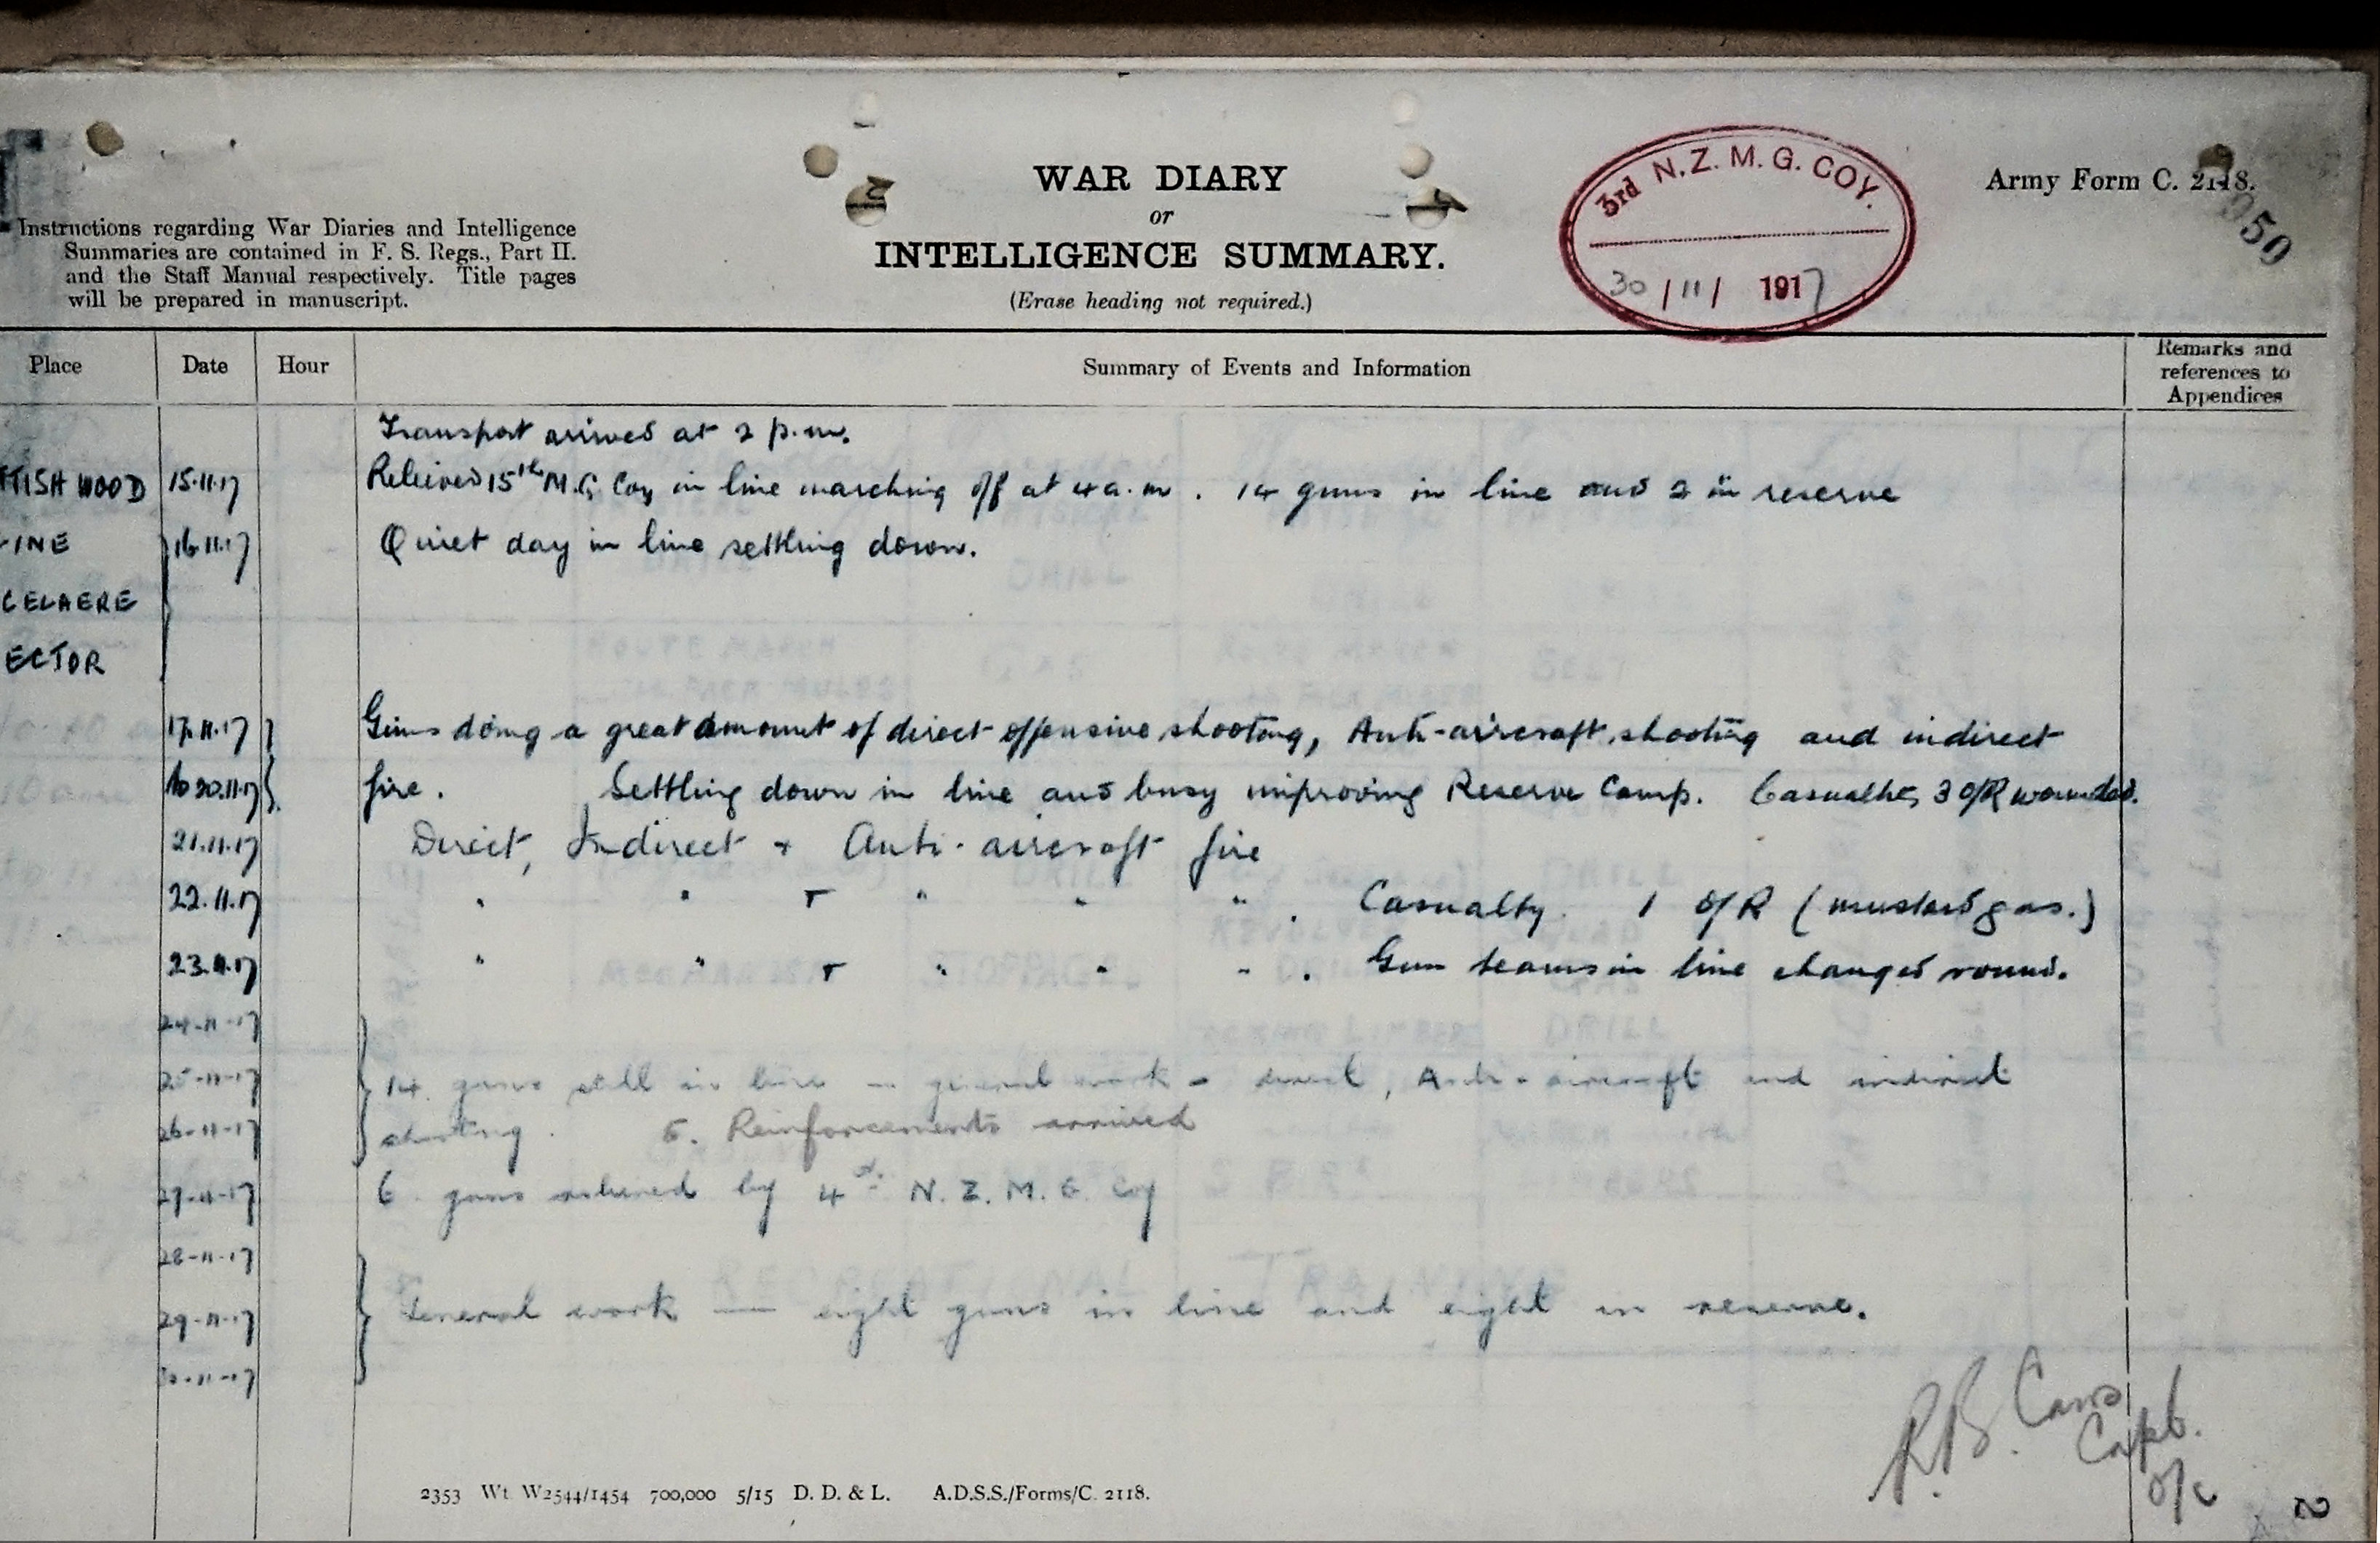 WAR DIARY
or
INTELLIGENCE SUMMARY.
(Erase heading not required.)
Instructions regarding War Diaries and Intelligence
Summaries are contained in F. S. Regs., Part II.
and the Staff Manual respectively. Title pages
will be prepared in manuscript.
3rd N.Z. M. G. COY.
30 / 11 / 1917
Army Form C. 2118.
50
Place Date Hour Summary of Events and Information Remarks and references to Appendices
Transport arrived at 2 p.m.
TTISH WOOD 15.11.17 Relieved 15th M.G. Coy in line marching off at 4 a.m. 14 guns in line and 2 in reserve
INE 16.11.17 Quiet day in line settling down.
CELAERE
ECTOR
17.11.17 Guns doing a great amount of direct offensive shooting, Anti-aircraft shooting and indirect
to 20.11.17 fire. Settling down in line and busy improving Reserve Camp. Casualties 3 O/R wounded.
21.11.17 Direct, Indirect + Anti-aircraft fire
22.11.17 " " + " " " . Casualty. 1 O/R (mustard gas.)
23.11.17 " " + " " " . Gun teams in line changed round.
24-11-17
25-11-17 14 guns still in line — general work - direct, Anti-aircraft and indirect
26-11-17 shooting. 6. Reinforcements arrived
27-11-17 6 guns relieved by 4th N.Z.M.G. Coy
28-11-17
29-11-17 General work — eight guns in line and eight in reserve.
30-11-17
R.B.
Capt.
O/c
2353 Wt. W2544/1454 700,000 5/15 D. D. & L. A.D.S.S./Forms/C. 2118.
2